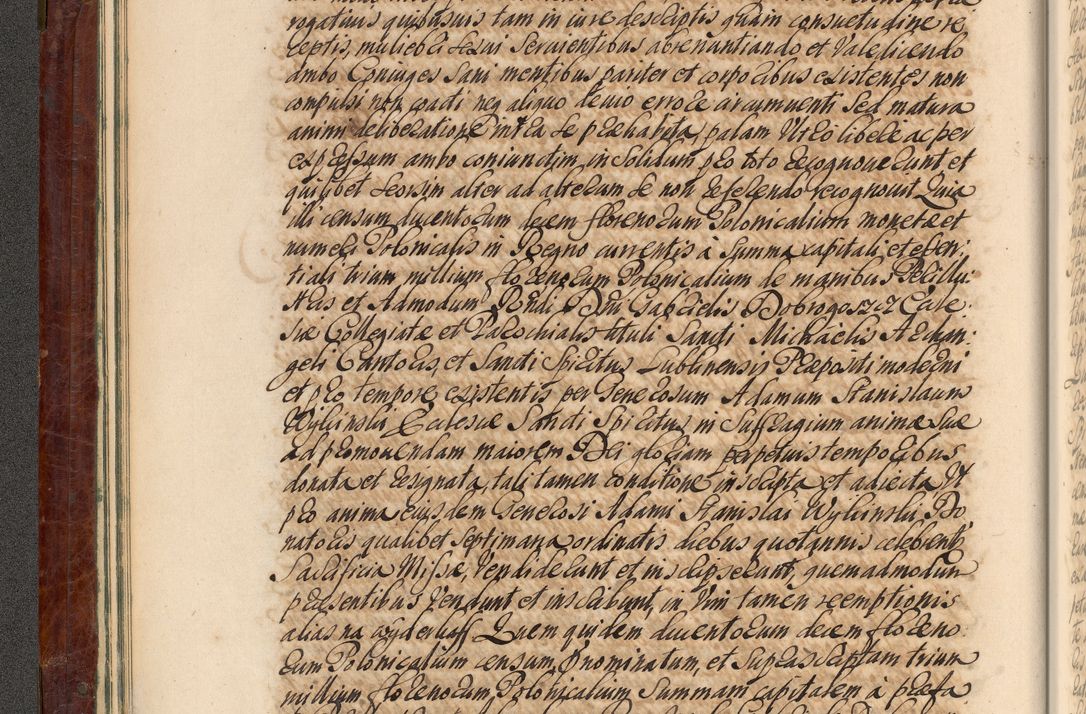 rogativis quibusvis tam in iure descriptis quam consuetudine re
ceptis, muliebri sexui servientibus abrenuntiando et Valedicendo
ambo Coniuges Sani mentibus pariter et corporibus existentes non
conpulsi non coacti neq aliquo devio errore circumventi Sed matura
animi deliberatione intra se praehabita, palam Ultro libere ac per
expressum ambo coniunctim, in Solidum pro toto recognoverunt et
quilibet seorsim alter ad alterum se non referendo recognovit Quia
illi censum ducentorum decem florenorum Polonicalium monetae et
numeri Polonicalis in Regno currentis à Summa capitali et essen-
tiali trium millium florenorum Polonicalium de manibus Perillu-
stris et Admodum Rndi Dni Gabrielis Dobrogoszcz Eccle-
siae Collegiatae et Parochialis tituli Sancti Michaelis Archan-
geli Cantoris, et Sancti Spiritus Lublinensis Praepositi moderni
et pro tempore existentis per Generosum Adamum Stanislaum
Wylinski Ecclesiae Sancti Spiritus in Suffragium animae suae
ad promovendam maiorem Dei gloriam perpetuis temporibus
donata et resignata, tali tamen conditione inscripta et adiecta Ut
pro anima eiusdem Generosi Adami Stanislai Wylinski Do
natoris qualibet Septimana ordinatis diebus quotannis celebrent
Sacrificia Missae, Vendiderunt et inscripserunt, quemadmodum
praesentibus Vendunt et inscribunt, in Vim tamen reemptionis
alias na wyderkaff Quem quidem ducentorum decem floreno-
rum Polonicalium censum, nominatum, et Suprascriptam trium
millium florenorum, Polonicalium Summam capitalem à praefa